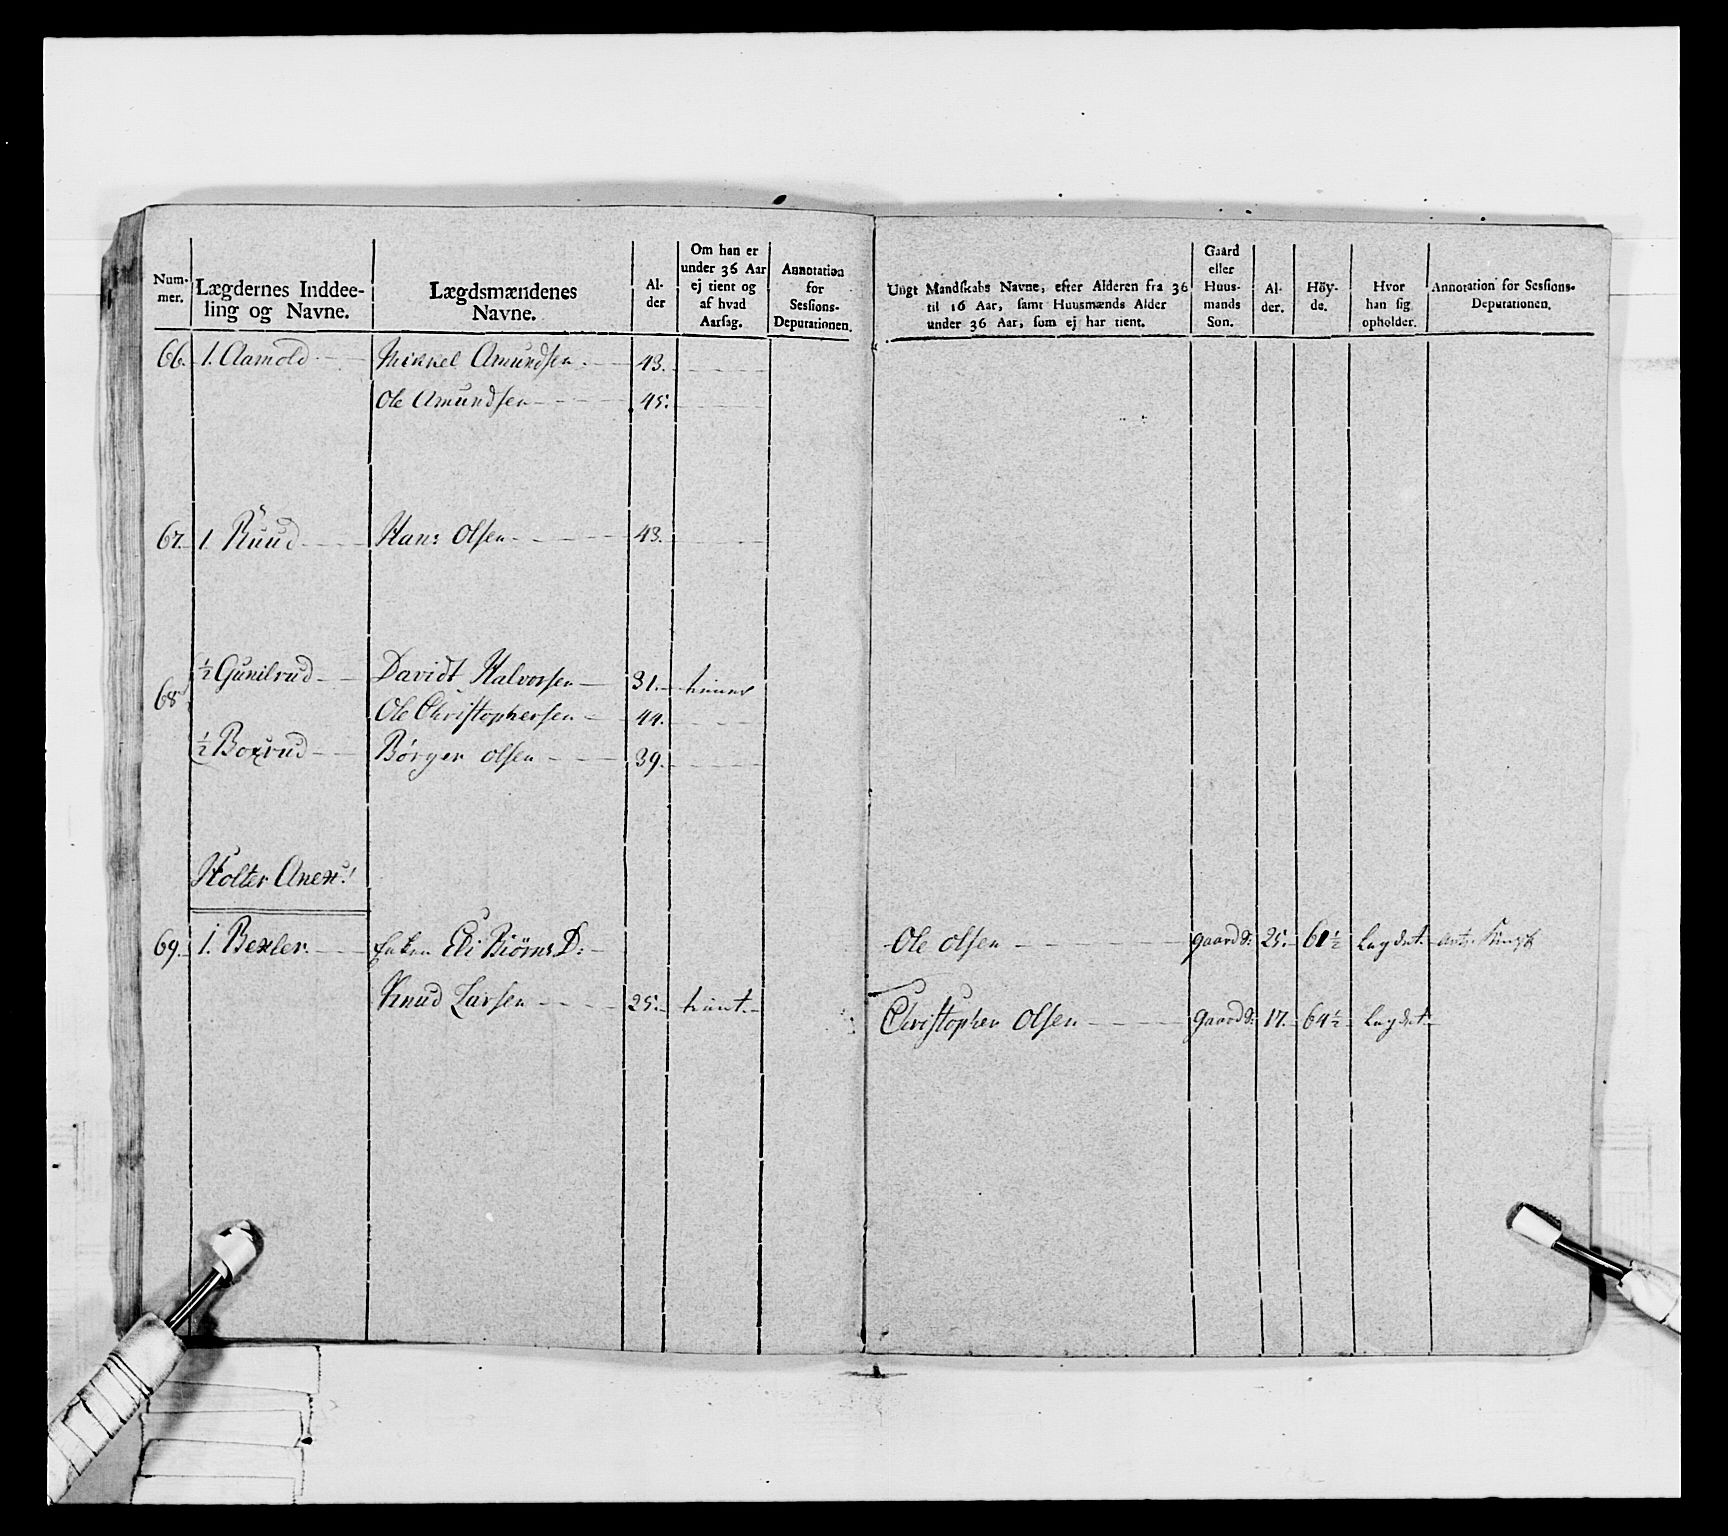 Num-
mer.
Lægdernes Inddee-
ling og Navne.
Lægdsmændenes
Navne.
Al-
der
Om han er
under 36 Aar
ej tient og
af hvad
Aarsag.
Annotation
for
Sessions-
Deputationen.
Ungt Mandskabs Navne, efter Alderen fra 36
til 16 Aar, samt Huusmænds Alder
under 36 Aar, som ej har tient.
Gaard
eller
Huus-
mands
Søn.
Al-
der.
Höy-
de.
Hvor
han sig
opholder.
Annotation for Sessions-
Deputationen.
66. 1. Aamold Mikkel Amundsen 43.
Ole Amundsen 45.
67. 1. Ruud Hans Olsen 43.
68 ½ Gunilrud Davidt Halvorsen 31.
Ole Christophersen 44.
½ Borrud Börger Olsen 39.
Holter Anex:
69. 1. Bexler Enken Eli BiörnsD: Ole Olsen gaardS: 25. 61½ Lægdet
Knud Larsen 25. tient
Christopher Olsen gaardS: 17. 64½ Lægdet